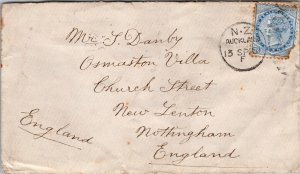 Mr. S. Danby
Osmaston Villa
Church Street
New Lenton
Nottingham
England
England
N.Z
AUCKLAND
13 SP
F